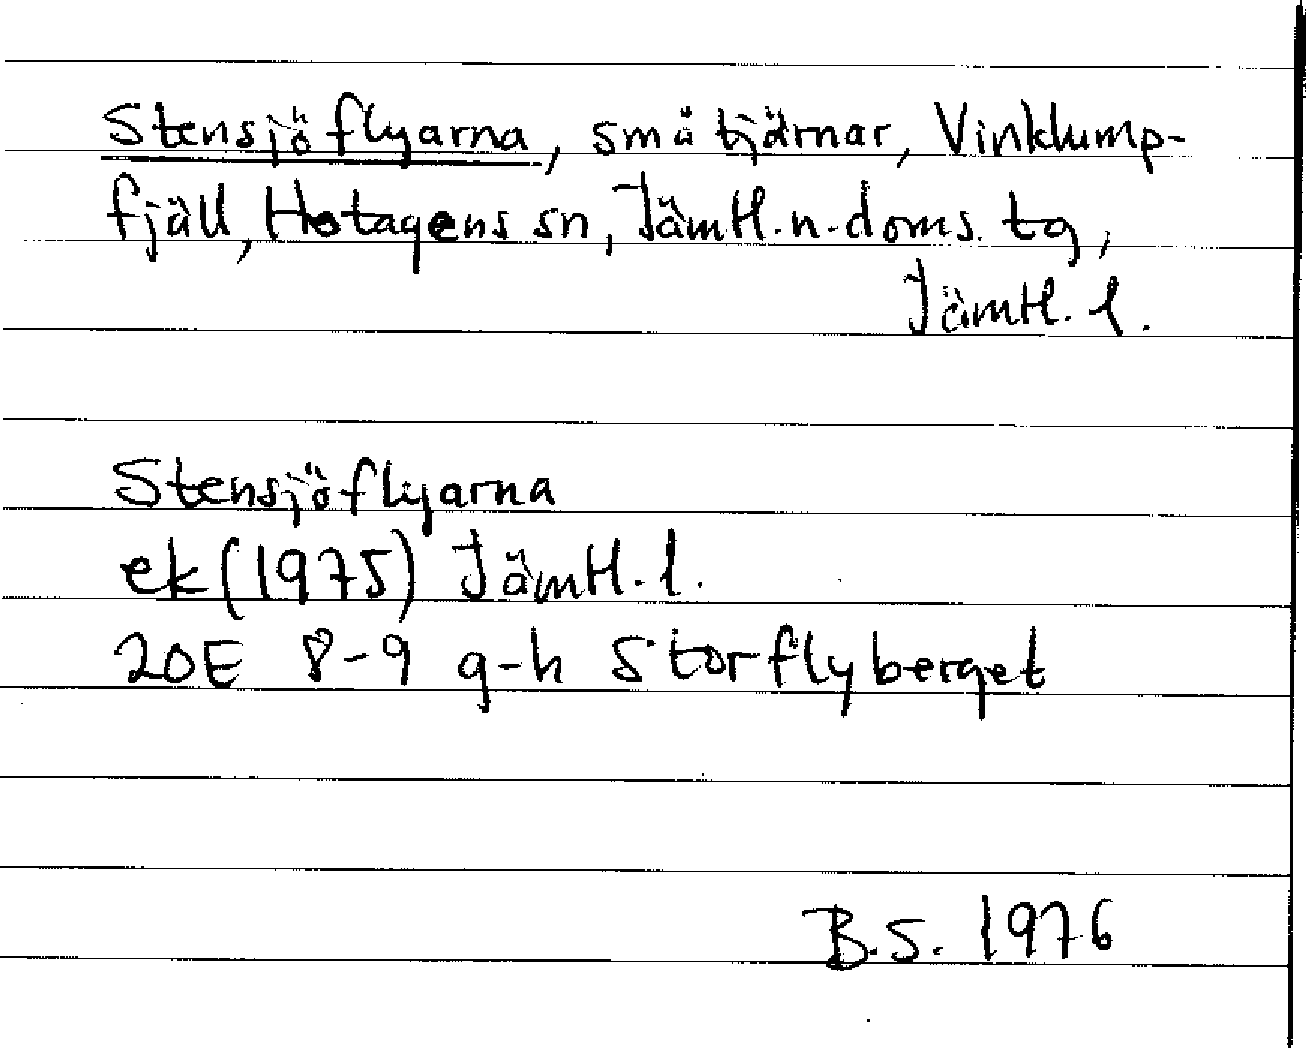 Stensjöflyarna, små tjärnar, Vinklump-
fjäll, Hotagens sn, Jämtl. n. doms. tg,
Jämtl. l.
Stensjöflyarna
ek (1975) Jämtl. l.
20E 8-9 g-h Storflyberget
B.S. 1976